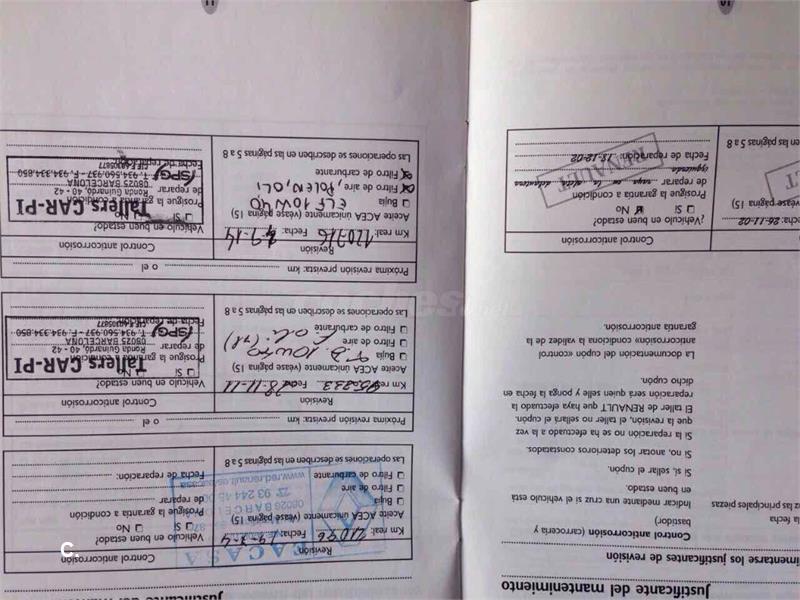 Justificante del mantenimiento
imentarse los justificantes de revisión
la fecha
z las principales piezas
Control anticorrosión (carrocería y
bastidor)
Indicar mediante una cruz si el vehículo está
en buen estado.
Si, sí, sellar el cupón.
Si, no, anotar los deterioros constatados.
Si la reparación no se ha efectuado a la vez
que la revisión, el taller no sellará el cupón.
El taller de RENAULT que haya efectuado la
reparación será quien selle y ponga la fecha en
dicho cupón.
La documentación del cupón «control
anticorrosión» condiciona la validez de la
garantía anticorrosión.
cha: 26-11-02
véase página 15)
n en las páginas 5 a 8
Control anticorrosión
¿Vehículo en buen estado?
SI No
Prosigue la garantía a condición
de reparar
Fecha de reparación: 18-12-02
RENAULT
10
Revisión
Km real: 21096 Fecha:
Aceite ACEA únicamente (véase página 15)
Bujía
Filtro de aire
Filtro de carburante
Las operaciones se describen en las páginas 5 a 8
CACASA
08026 BARCEL
93 244 45 00
Control anticorrosión
Vehículo en buen estado?
SI No
Prosigue la garantía a condición
de reparar
Fecha de reparación:
Próxima revisión prevista: km o el
Revisión
Km real: 95233 Fecha: 28-11-11
Aceite ACEA únicamente (véase página 15)
Bujía
Filtro de aire
Filtro de carburante
Las operaciones se describen en las páginas 5 a 8
Control anticorrosión
Vehículo en buen estado?
Prosigue la garantía a condición
de reparar
Fecha de reparación:
Tallers CAR-PI
Ronda Guinardó, 40 - 42
08025 BARCELONA
T. 934.560.937 - F. 934.334.850
SPG
Próxima revisión prevista: km o el
Revisión
Km real: 120716 Fecha:
Aceite ACEA únicamente (véase página 15)
Bujía ELF 10W40
Filtro de aire, POLEN, OLI
Filtro de carburante
Las operaciones se describen en las páginas 5 a 8
Control anticorrosión
Vehículo en buen estado?
SI No
Prosigue la garantía a condición
de reparar
Fecha de reparación:
Tallers CAR-PI
Ronda Guinardó, 40 - 42
08025 BARCELONA
T. 934.560.937 - F. 934.334.850
SPG
11